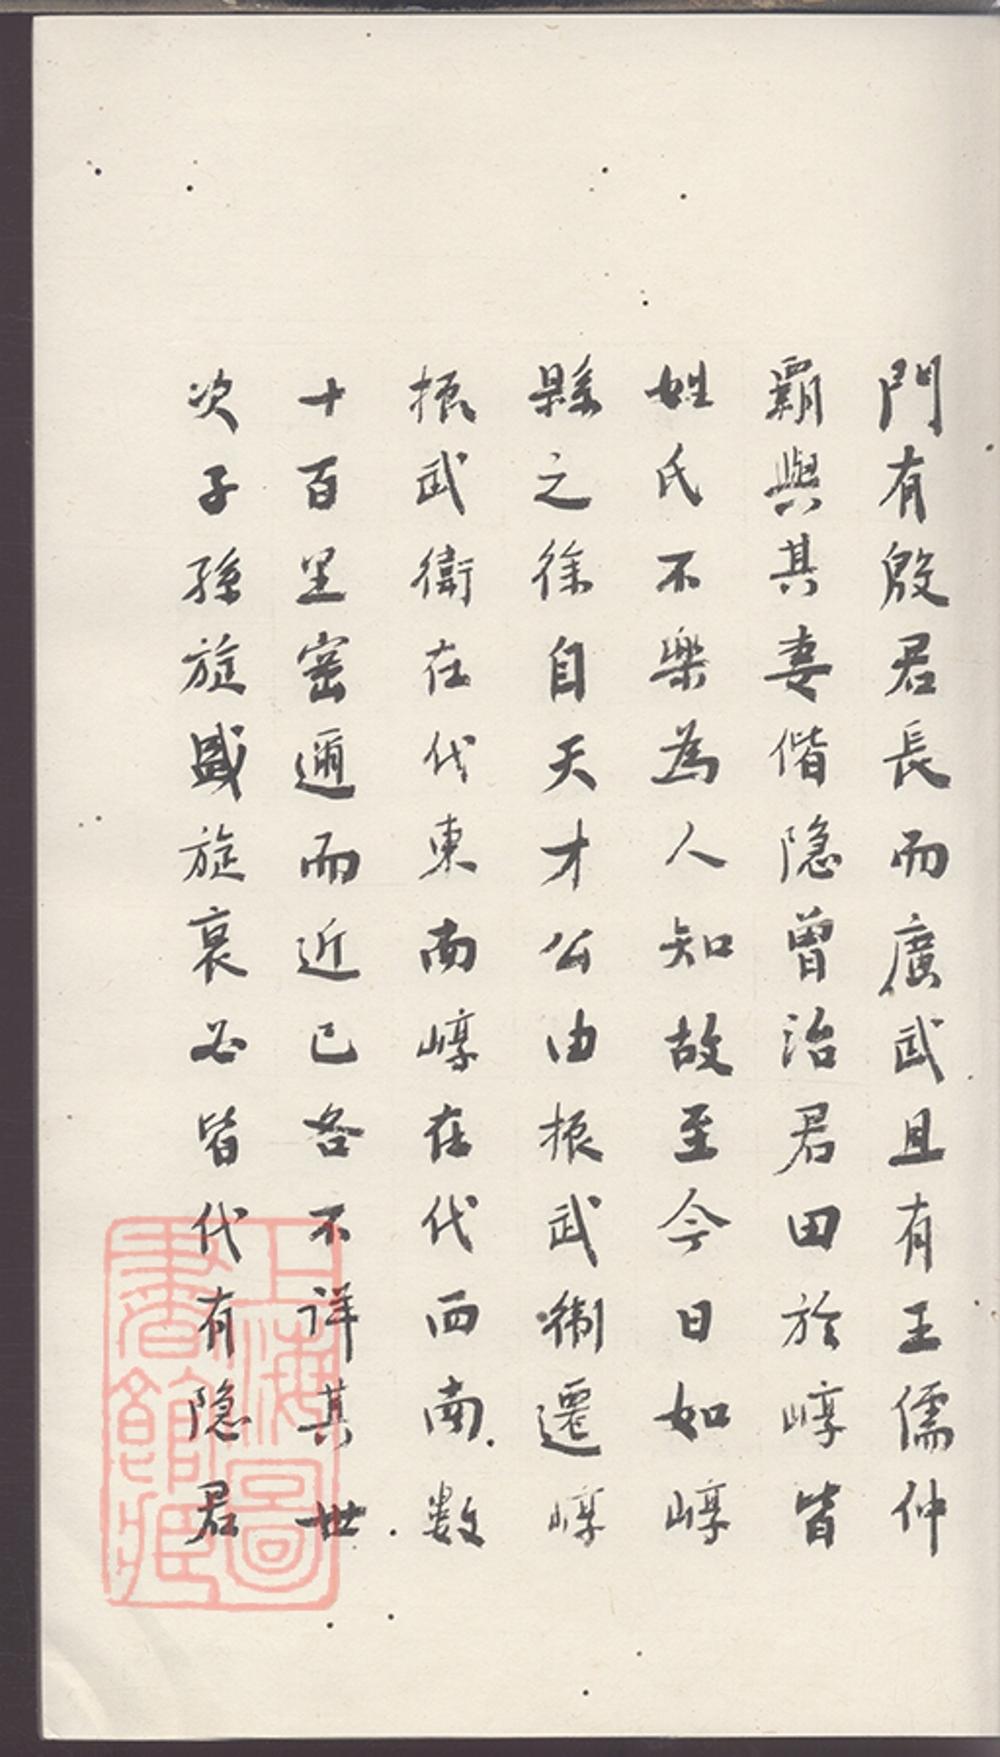 門有殷君長而廣武且有王儒仲
霸與其妻偕隐曾治君田於崞皆
姓氏不樂為人知故至今日如崞
縣之徐自天才公由振武衛遷崞
振武衛在代東南崞在代西南数
十百里密邇而近已各不詳其世
次子孫旋盛旋衰必皆代有隐君
上海圖
書館藏